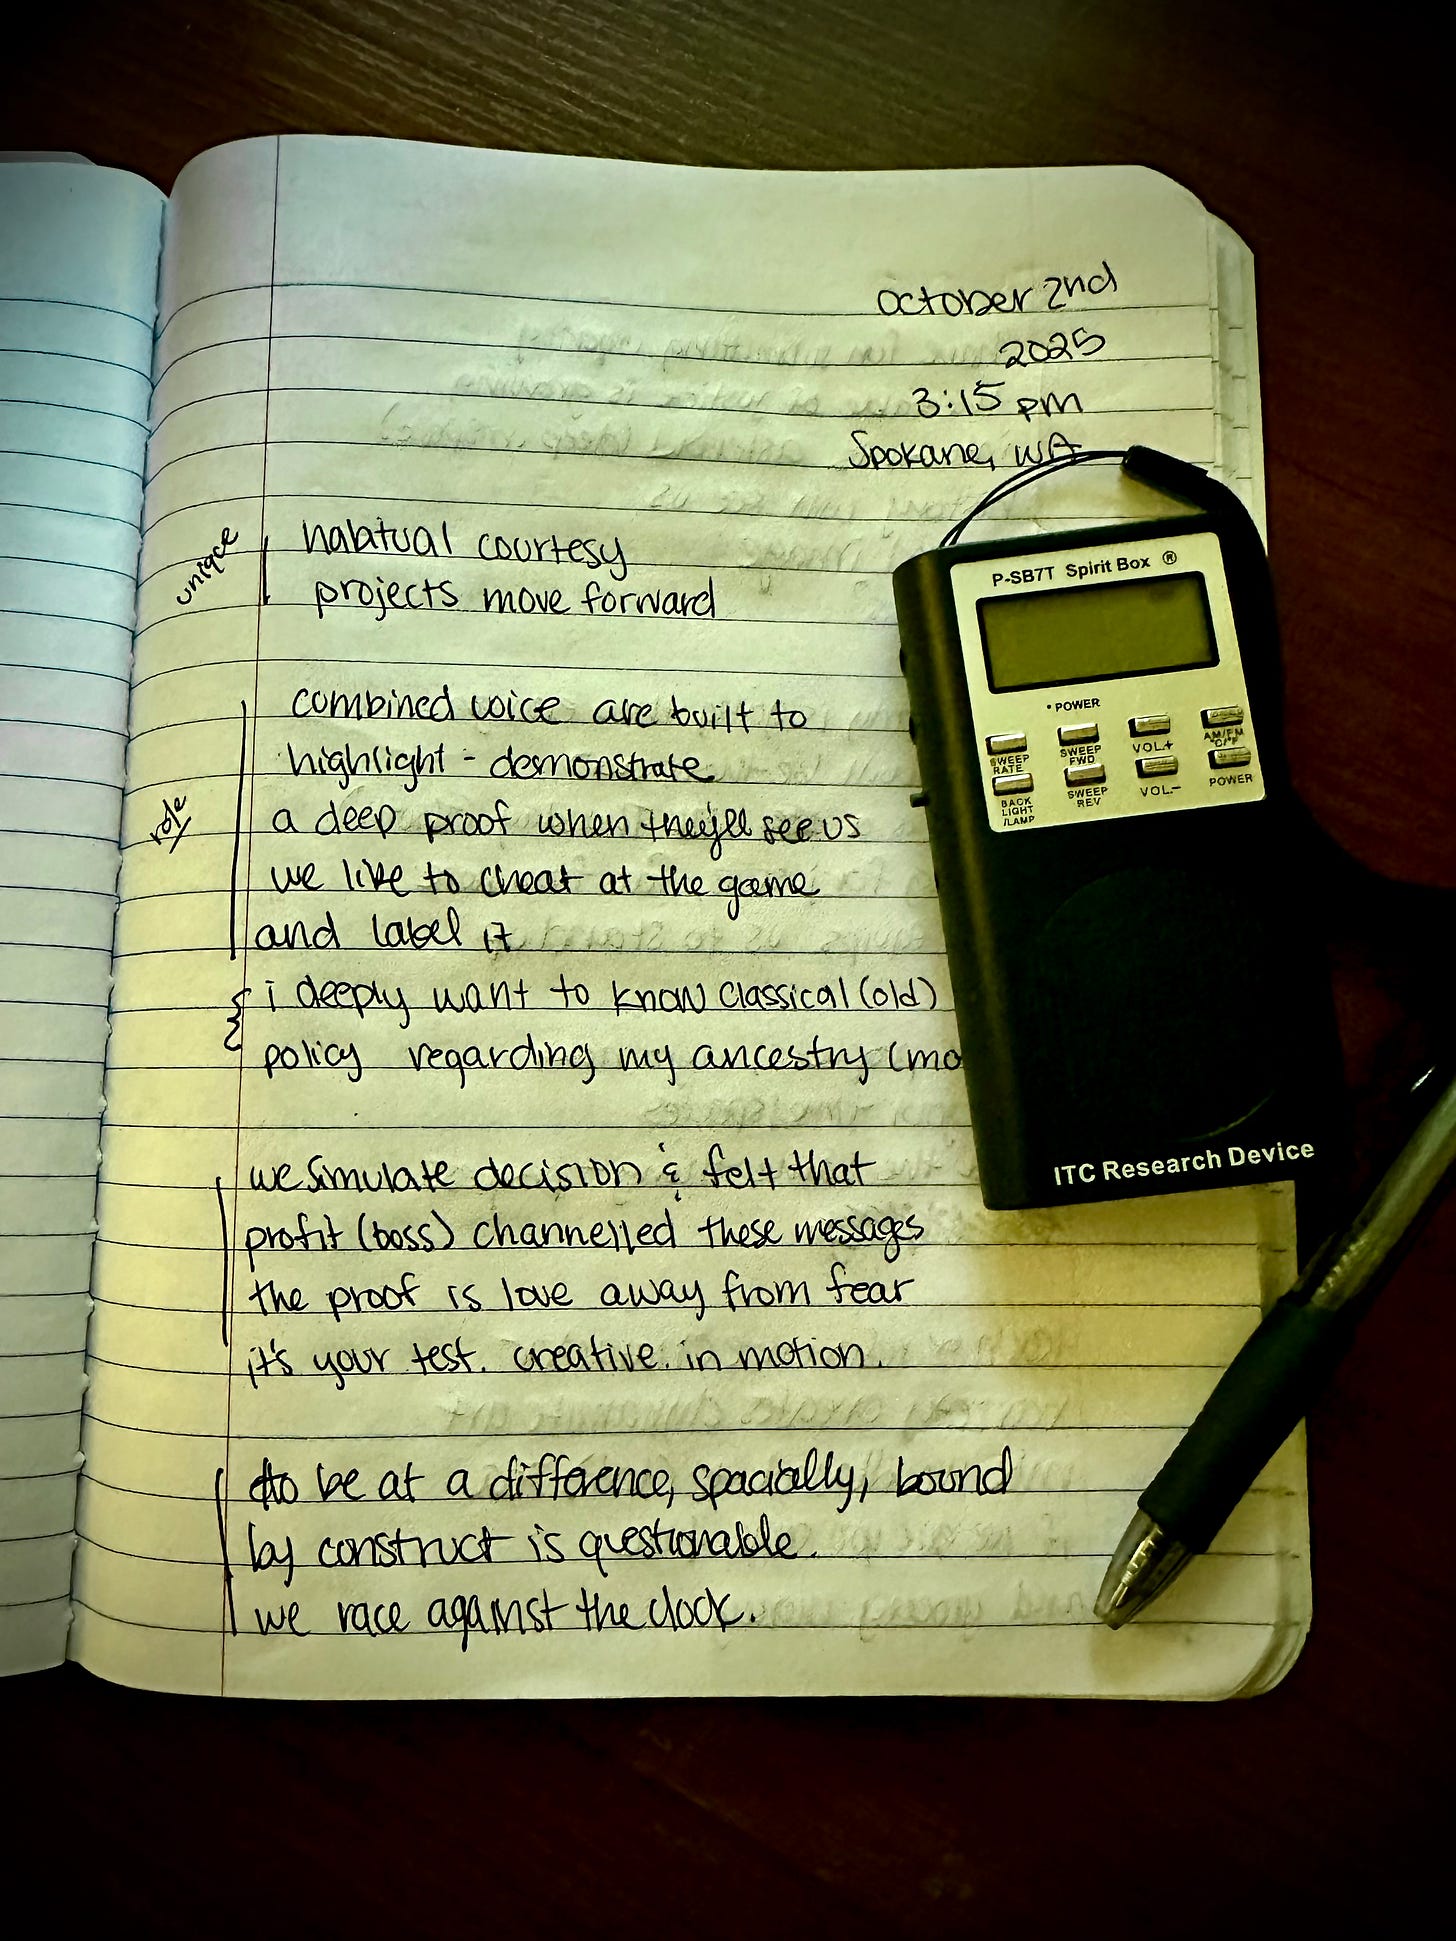 October 2nd
2025
3:15 pm
Spokane, WA
unique
habatual courtesy
projects move forward
role
combined voice are built to
highlight - demonstrate
a deep proof when they'll see us
we like to cheat at the game
and label it
i deeply want to know classical (old)
policy regarding my ancestry (mo
we simulate decision & felt that
profit (boss) channelled these messages
the proof is love away from fear
it's your test. creative. in motion.
to be at a difference, spacially, bound
by construct is questionable.
we race against the clock.
P-SB7T Spirit Box ®
• POWER
SWEEP RATE
SWEEP FWD
VOL+
AM/FM
BACK LIGHT /LAMP
SWEEP REV
VOL-
POWER
ITC Research Device